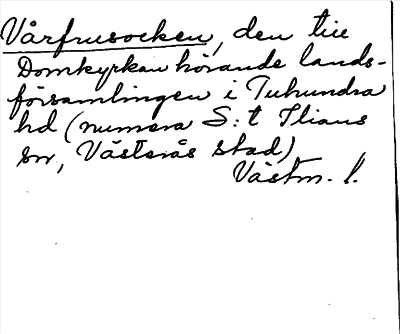 Vårfrusocken, den till
Domkyrkan hörande lands-
församlingen i Tuhundra
hd (numera S:t Ilians
sn, Västerås stad)
Västm. l.